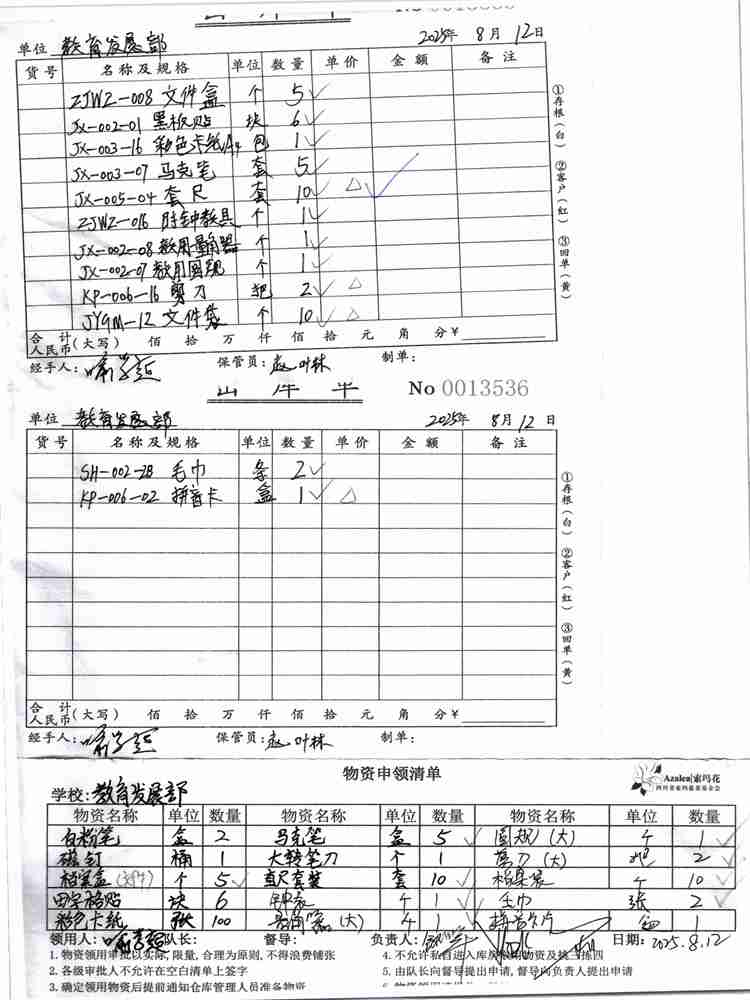 单位 教育发展部 2025年 8月 12日
货号 名称及规格 单位 数量 单价 金额 备注
ZJWZ-008 文件盒 个 5
JX-002-01 黑板贴 块 6
JX-003-16 彩色卡纸A4 包 1
JX-003-07 马克笔 套 5
JX-005-04 套尺 套 10
ZJWZ-016 时钟教具 个 1
JX-002-08 教用量角器 个 1
JX-002-07 教用圆规 个 1
KP-006-16 剪刀 把 2
JYGM-12 文件袋 个 10
合计人民币(大写) 佰 拾 万 仟 佰 拾 元 角 分¥
经手人: 保管员: 叶林 制单:
①存根(白) ②客户(红) ③回单(黄)
No 0013536
单位 教育发展部 2025年 8月 12日
货号 名称及规格 单位 数量 单价 金额 备注
SH-002-2B 毛巾 条 2
KP-006-02 拼音卡 盒 1
合计人民币(大写) 佰 拾 万 仟 佰 拾 元 角 分¥
经手人: 保管员: 叶林 制单:
①存根(白) ②客户(红) ③回单(黄)
物资申领清单
Azalea 索玛花
四川省索玛慈善基金会
学校: 教育发展部
物资名称 单位 数量 物资名称 单位 数量 物资名称 单位 数量
白粉笔 盒 2 马克笔 盒 5 圆规(大) 个 1
磁钉 桶 1 大转笔刀 个 1 剪刀(大) 把 2
档案盒 个 5 直尺套装 套 10 档案袋 个 10
田字格贴 块 6 钟表 个 1 毛巾 张 2
彩色卡纸 张 100 量角器(大) 个 1 拼音卡片 盒 1
领用人: 队长: 督导: 负责人: 日期: 2025.8.12
1. 物资领用审批以实际, 限量, 合理为原则, 不得浪费铺张
4. 不允许私自进入库房
2. 各级审批人不允许在空白清单上签字
5. 由队长向督导提出申请, 督导向负责人提出申请
3. 确定领用物资后提前通知仓库管理人员准备物资